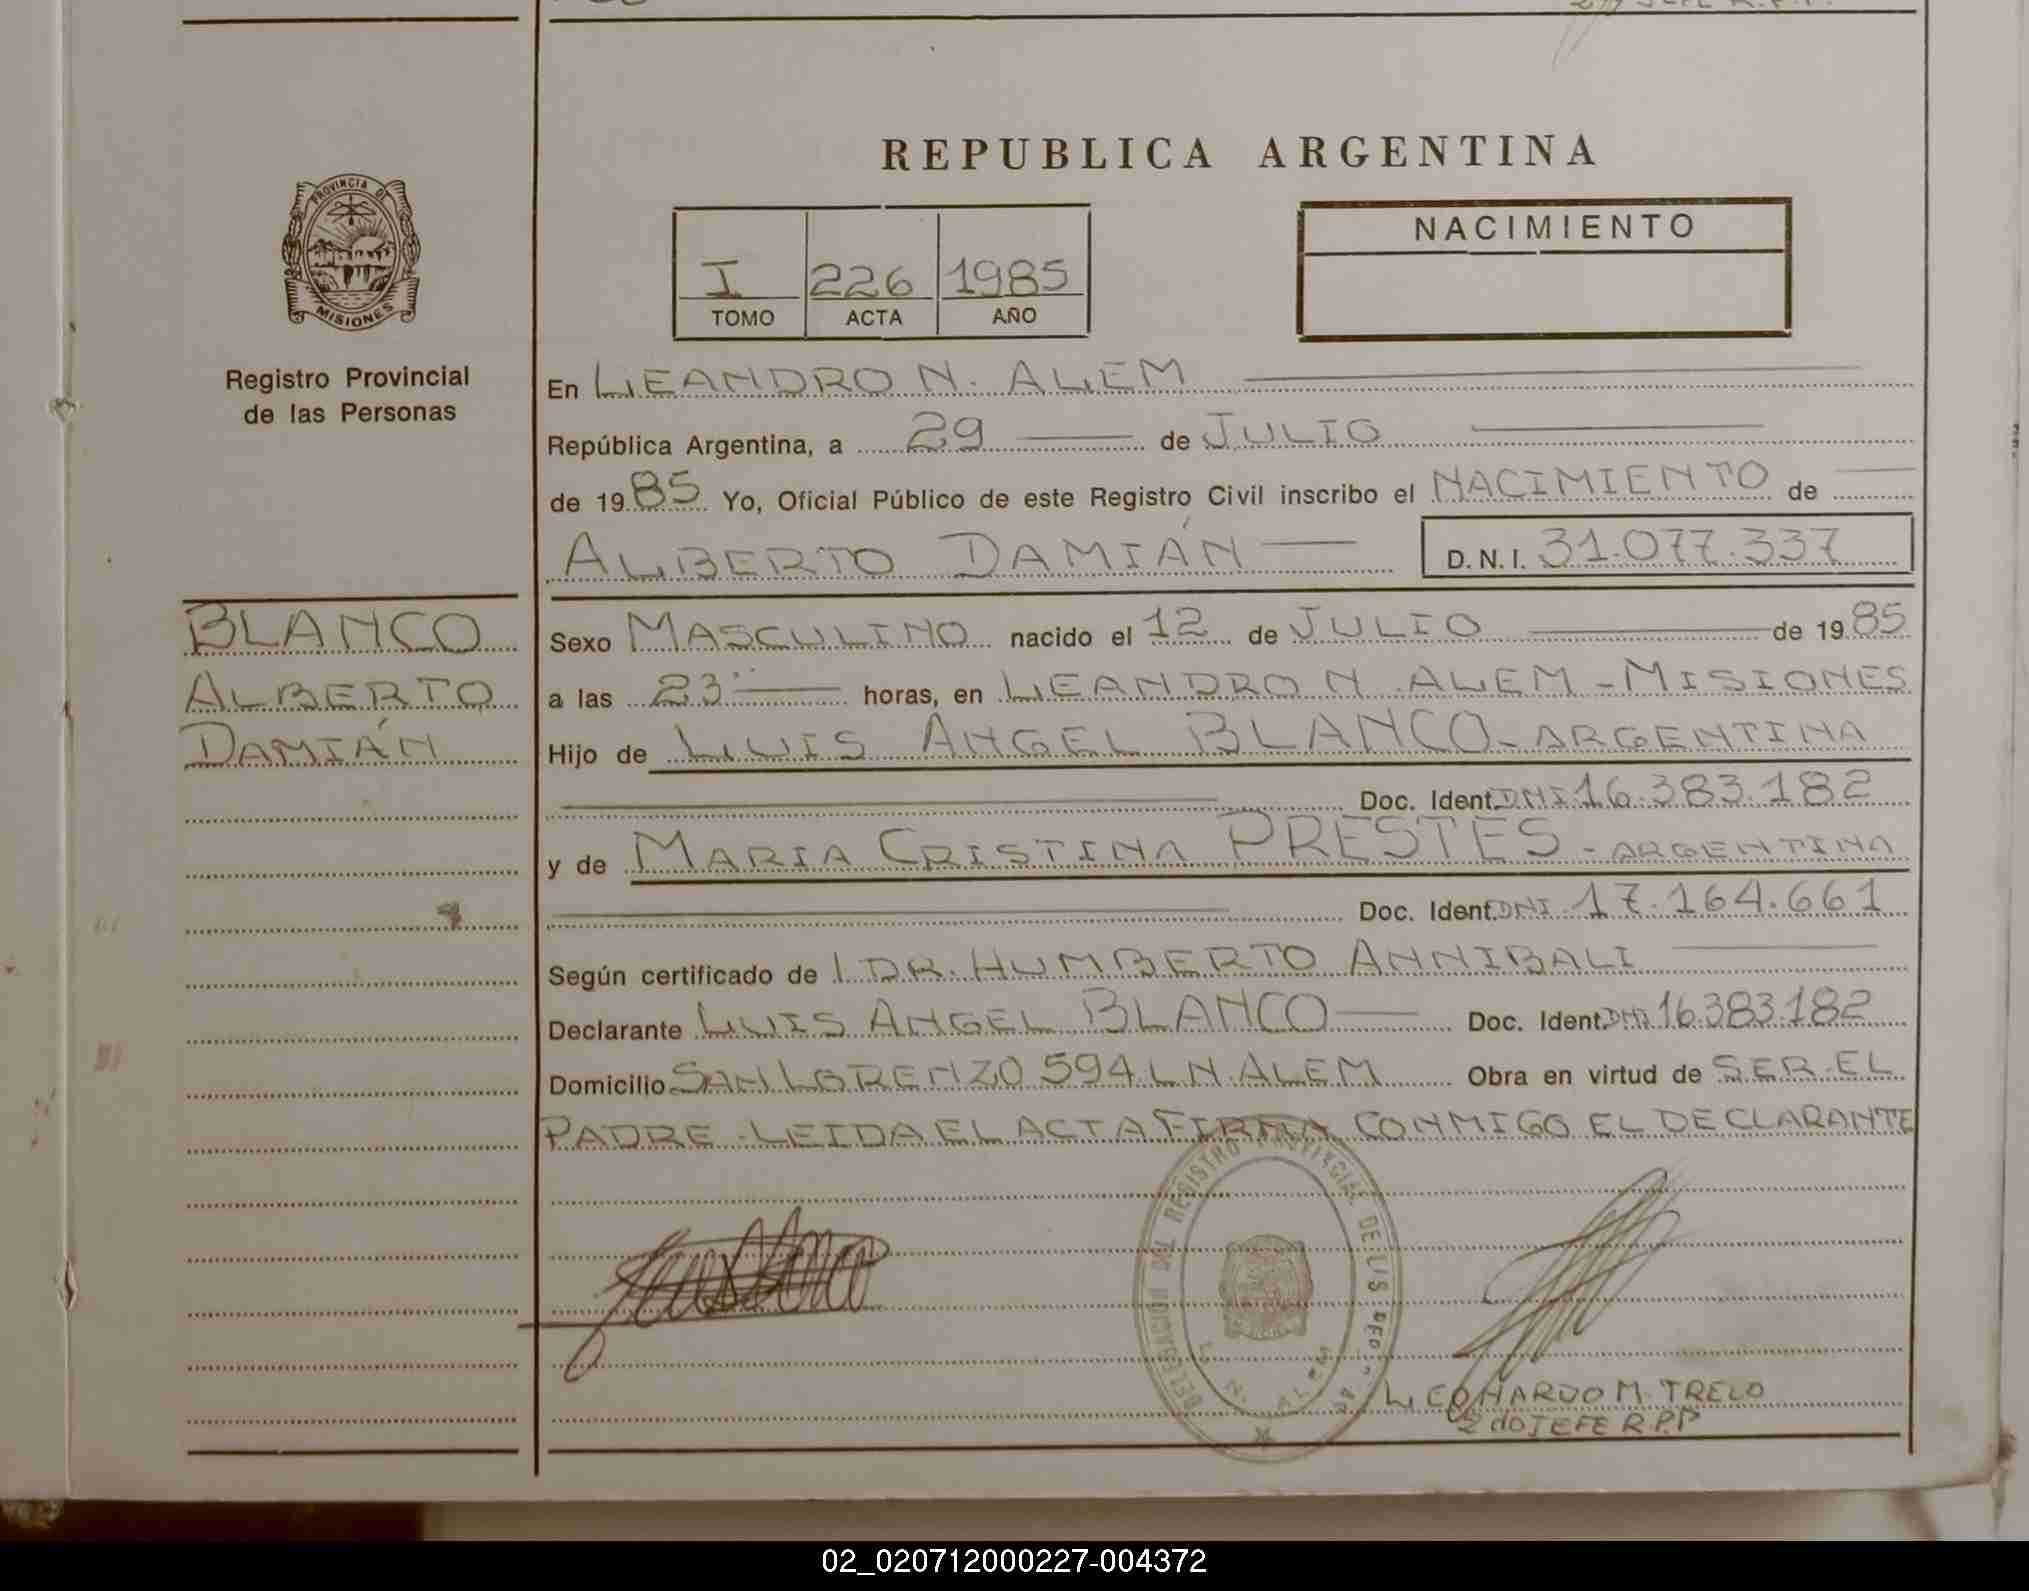 REPUBLICA ARGENTINA
PROVINCIA DE
MISIONES
Registro Provincial
de las Personas
NACIMIENTO
I 226 1985
TOMO ACTA AÑO
En LEANDRO N. ALEM
República Argentina, a 29 de JULIO
de 1985 Yo, Oficial Público de este Registro Civil inscribo el NACIMIENTO de
ALBERTO DAMIÁN D.N.I. 31.077.337
BLANCO
ALBERTO
DAMIÁN
Sexo MASCULINO nacido el 12 de JULIO de 1985
a las 23 horas, en LEANDRO N. ALEM - MISIONES
Hijo de LUIS ANGEL BLANCO - ARGENTINA
Doc. Ident. DNI 16.383.182
y de MARIA CRISTINA PRESTES - ARGENTINA
Doc. Ident. DNI 17.164.661
Según certificado de DR. HUMBERTO ANNIBALI
Declarante LUIS ANGEL BLANCO Doc. Ident. DNI 16.383.182
Domicilio SAN LORENZO 594 L.N. ALEM Obra en virtud de SER EL
PADRE - LEIDA EL ACTA FIRMA CONMIGO EL DECLARANTE
DELEGACION DEL REGISTRO PROVINCIAL DE LAS
L. N. ALEM
LEONARDO M. TRELO
2do JEFE R.P.P
02_020712000227-004372